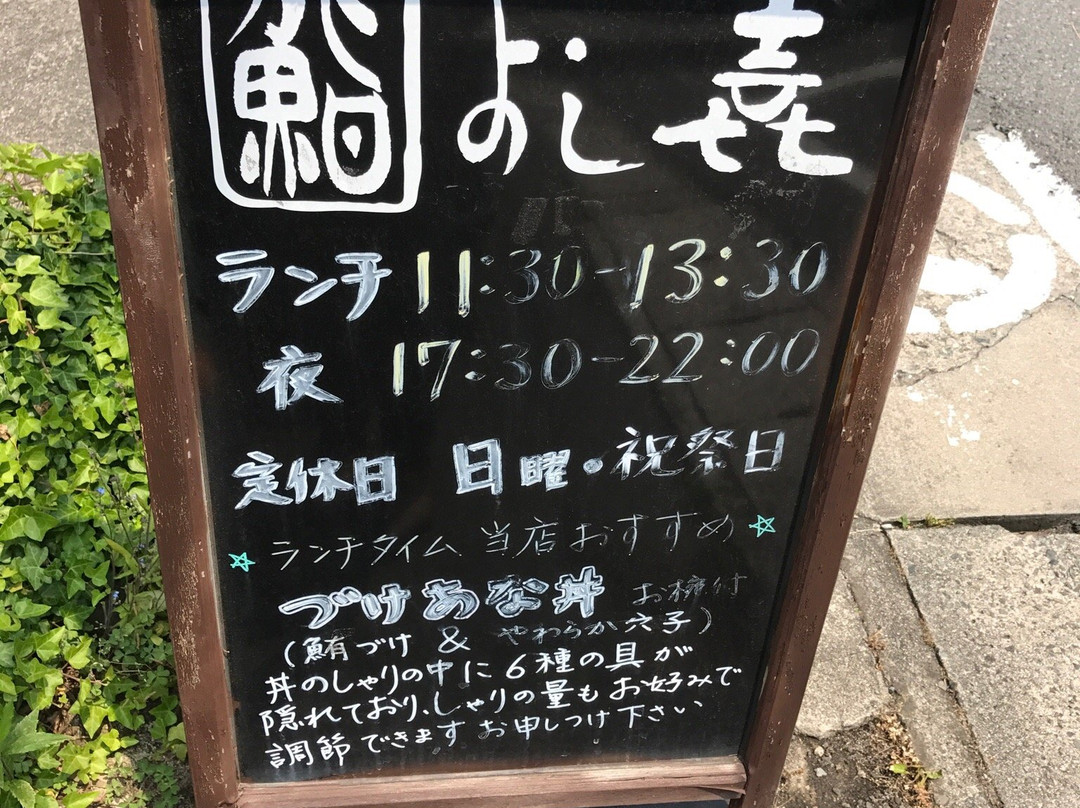 鮨 よし㐂
ランチ 11:30-13:30
夜 17:30-22:00
定休日 日曜・祝祭日
☆ランチタイム 当店おすすめ☆
づけあな丼 お椀付
(鮪づけ & やわらか穴子)
丼のしゃりの中に6種の具が
隠れており、しゃりの量もお好みで
調節できます お申しつけ下さい